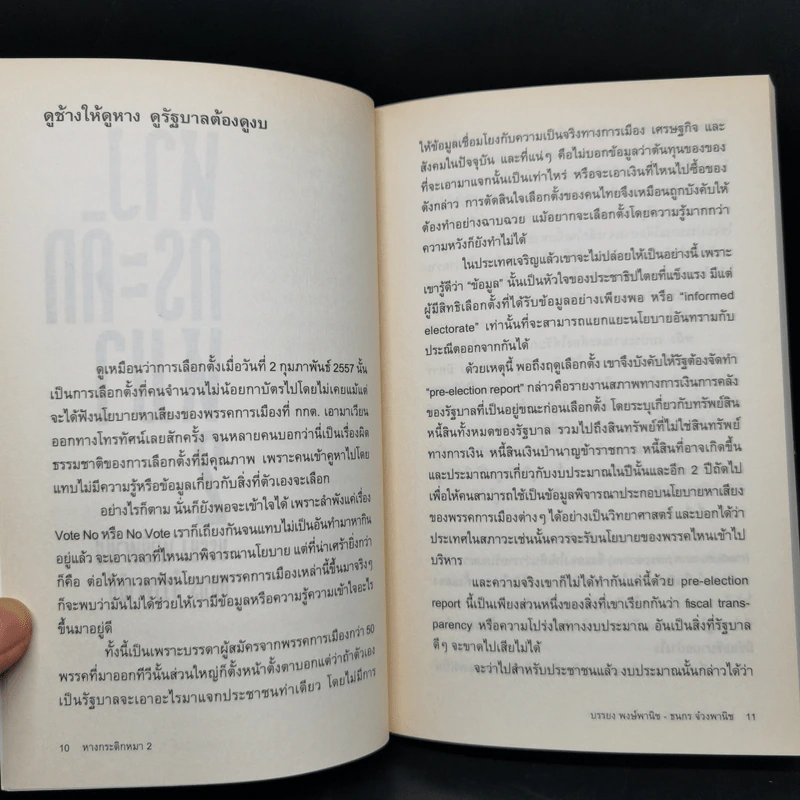 ดูช้างให้ดูหาง ดูรัฐบาลต้องดูงบ
ดูเหมือนว่าการเลือกตั้งเมื่อวันที่ 2 กุมภาพันธ์ 2557 นั้น
เป็นการเลือกตั้งที่คนจำนวนไม่น้อยกาบัตรไปโดยไม่เคยแม้แต่
จะได้ฟังนโยบายหาเสียงของพรรคการเมืองที่ กกต. เอามาเวียน
ออกทางโทรทัศน์เลยสักครั้ง จนหลายคนบอกว่านี่เป็นเรื่องผิด
ธรรมชาติของการเลือกตั้งที่มีคุณภาพ เพราะคนเข้าคูหาไปโดย
แทบไม่มีความรู้หรือข้อมูลเกี่ยวกับสิ่งที่ตัวเองจะเลือก
อย่างไรก็ตาม นั่นก็ยังพอจะเข้าใจได้ เพราะลำพังแค่เรื่อง
Vote No หรือ No Vote เราก็เถียงกันจนแทบไม่เป็นอันทำมาหากิน
อยู่แล้ว จะเอาเวลาที่ไหนมาพิจารณานโยบาย แต่ที่น่าเศร้ายิ่งกว่า
ก็คือ ต่อให้หาเวลาฟังนโยบายพรรคการเมืองเหล่านี้ขึ้นมาจริงๆ
ก็จะพบว่ามันไม่ได้ช่วยให้เรามีข้อมูลหรือความรู้ความเข้าใจอะไร
ขึ้นมาอยู่ดี
ทั้งนี้เป็นเพราะบรรดาผู้สมัครจากพรรคการเมืองกว่า 50
พรรคที่มาออกทีวีนั้นส่วนใหญ่ก็ตั้งหน้าตั้งตาบอกแต่ว่าถ้าตัวเอง
เป็นรัฐบาลจะเอาอะไรมาแจกประชาชนท่าเดียว โดยไม่มีการ
10 หางกระดิกหมา 2
ให้ข้อมูลเชื่อมโยงกับความเป็นจริงทางการเมือง เศรษฐกิจ และ
สังคมในปัจจุบัน และที่แน่ๆ คือไม่บอกข้อมูลว่าต้นทุนของของ
ที่จะเอามาแจกนั้นเป็นเท่าไหร่ หรือจะเอาเงินที่ไหนไปซื้อของ
ดังกล่าว การตัดสินใจเลือกตั้งของคนไทยจึงเหมือนถูกบังคับให้
ต้องทำอย่างฉาบฉวย แม้อยากจะเลือกตั้งโดยความรู้มากกว่า
ความหวังก็ยังทำไม่ได้
ในประเทศเจริญแล้วเขาจะไม่ปล่อยให้เป็นอย่างนี้ เพราะ
เขารู้ดีว่า “ข้อมูล” นั้นเป็นหัวใจของประชาธิปไตยที่แข็งแรง มีแต่
ผู้มีสิทธิเลือกตั้งที่ได้รับข้อมูลอย่างเพียงพอ หรือ “informed
electorate” เท่านั้นที่จะสามารถแยกแยะนโยบายอันทรามกับ
ประณีตออกจากกันได้
ด้วยเหตุนี้ พอถึงฤดูเลือกตั้ง เขาจึงบังคับให้รัฐต้องจัดทำ
“pre-election report” กล่าวคือรายงานสภาพทางการเงินการคลัง
ของรัฐบาลที่เป็นอยู่ขณะก่อนเลือกตั้ง โดยระบุเกี่ยวกับทรัพย์สิน
หนี้สินทั้งหมดของรัฐบาล รวมไปถึงสินทรัพย์ที่ไม่ใช่สินทรัพย์
ทางการเงิน หนี้สินเงินบำนาญข้าราชการ หนี้สินที่อาจเกิดขึ้น
และประมาณการเกี่ยวกับงบประมาณในปีนั้นและอีก 2 ปีถัดไป
เพื่อให้คนสามารถใช้เป็นข้อมูลพิจารณาประกอบนโยบายหาเสียง
ของพรรคการเมืองต่างๆ ได้อย่างเป็นวิทยาศาสตร์ และบอกได้ว่า
ประเทศในสภาวะเช่นนั้นควรจะรับนโยบายของพรรคไหนเข้าไป
บริหาร
และความจริงเขาก็ไม่ได้ทำกันแค่นี้ด้วย pre-election
report นี้เป็นเพียงส่วนหนึ่งของสิ่งที่เขาเรียกกันว่า fiscal trans-
parency หรือความโปร่งใสทางงบประมาณ อันเป็นสิ่งที่รัฐบาล
ดีๆ จะขาดไปเสียไม่ได้
จะว่าไปสำหรับประชาชนแล้ว งบประมาณนั้นกล่าวได้ว่า
บรรยง พงษ์พานิช - ธนกร จ๋วงพานิช 11